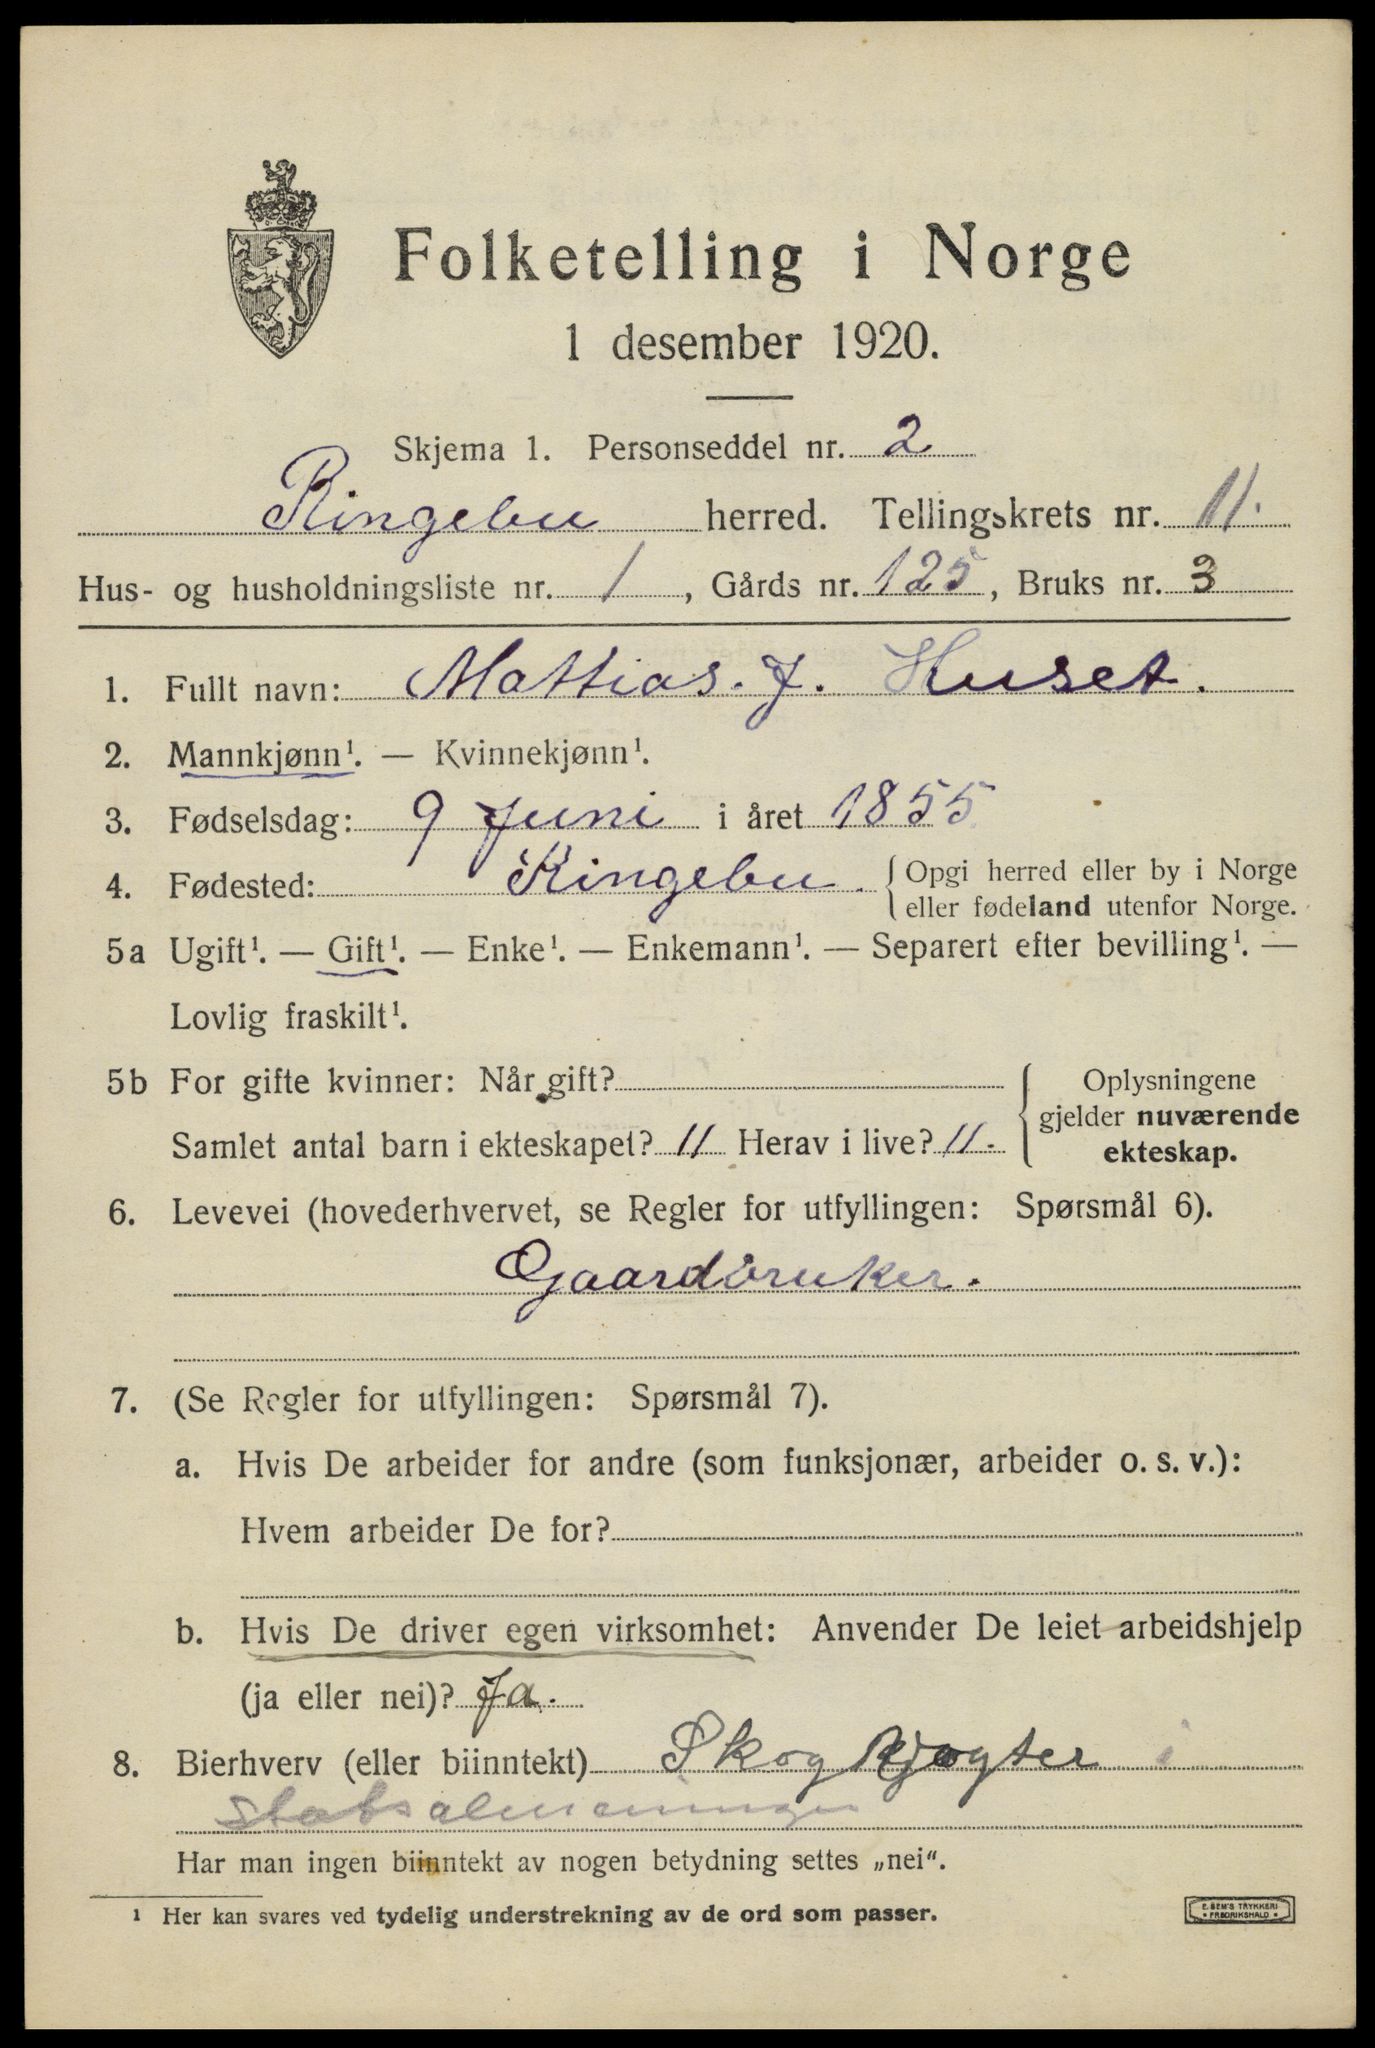 Folketelling i Norge
1 desember 1920.
Skjema 1. Personseddel nr. 2
Ringebu herred. Tellingskrets nr. 11.
Hus- og husholdningsliste nr. 1, Gårds nr. 125, Bruks nr. 3
1. Fullt navn: Mattias. J. Huset.
2. Mannkjønn¹. — Kvinnekjønn¹.
3. Fødselsdag: 9 Juni i året 1855
4. Fødested: Ringebu. { Opgi herred eller by i Norge
eller fødeland utenfor Norge.
5a Ugift¹. — Gift¹. — Enke¹. — Enkemann¹. — Separert efter bevilling¹. —
Lovlig fraskilt¹.
5b For gifte kvinner: Når gift? { Oplysningene
gjelder nuværende
Samlet antal barn i ekteskapet? 11 Herav i live? 11.
ekteskap.
6. Levevei (hovederhvervet, se Regler for utfyllingen: Spørsmål 6).
Gaardbruker.
7. (Se Regler for utfyllingen: Spørsmål 7).
a. Hvis De arbeider for andre (som funksjonær, arbeider o. s. v.):
Hvem arbeider De for?
b. Hvis De driver egen virksomhet: Anvender De leiet arbeidshjelp
(ja eller nei)? Ja.
8. Bierhverv (eller biinntekt) Skog i
Har man ingen biinntekt av nogen betydning settes „nei“.
¹ Her kan svares ved tydelig understrekning av de ord som passer.
E. SEM'S TRYKKERI
* FREDRIKSHALD *